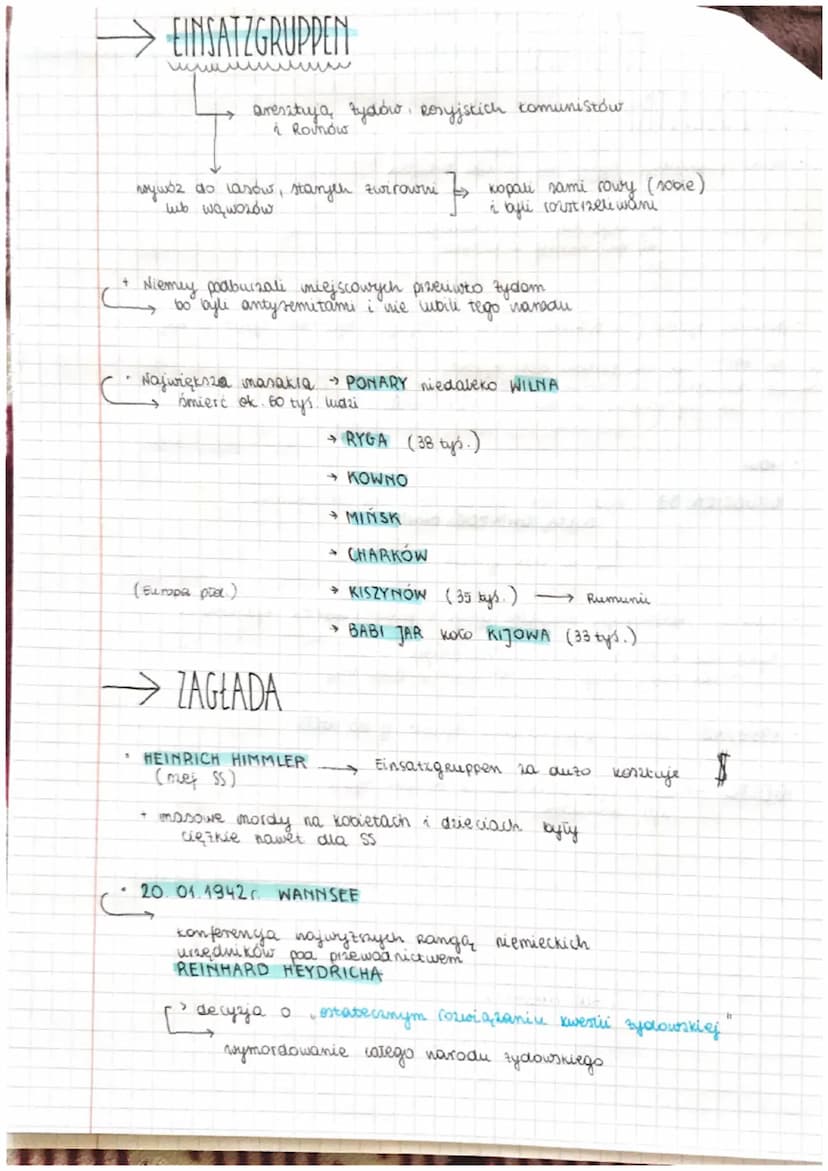 → EINSATZGRUPPEN
→ aresztują żydów, rosyjskich komunistów
i Romów
wywóz do lasów, starych żwirowni
lub wąwozów
→ kopali sami rowy (sobie)
i byli rozstrzeliwani
+ Niemcy podburzali miejscowych przeciwko żydom
→ bo byli antysemitami i nie lubili tego narodu
• Największa masakra → PONARY niedaleko WILNA
→ śmierć ok. 60 tys. ludzi
→ RYGA (38 tyś.)
→ KOWNO
→ MIŃSK
→ CHARKÓW
(Europa płd.) → KISZYNÓW (35 tyś.) → Rumunia
→ BABI JAR koło KIJOWA (33 tyś.)
→ ZAGŁADA
• HEINRICH HIMMLER → Einsatzgruppen za dużo kosztuje $
(szef SS)
+ masowe mordy na kobietach i dzieciach były
ciężkie nawet dla SS
• 20.01.1942r. WANNSEE
konferencja najwyższych rangą niemieckich
urzędników pod przewodnictwem
REINHARD HEYDRICHA
> decyzja o „ostatecznym rozwiązaniu kwestii żydowskiej"
→ wymordowanie całego narodu żydowskiego